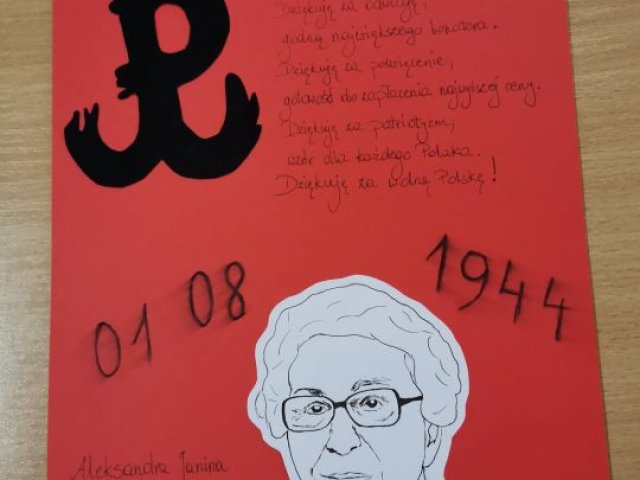 Dziękuję za odwagę,
godną największego bohatera.
Dziękuję za poświęcenie,
gotowość do zapłacenia najwyższej ceny.
Dziękuję za patriotyzm,
wzór dla każdego Polaka.
Dziękuję za wolną Polskę!
01 08 1944
Aleksandra Janina